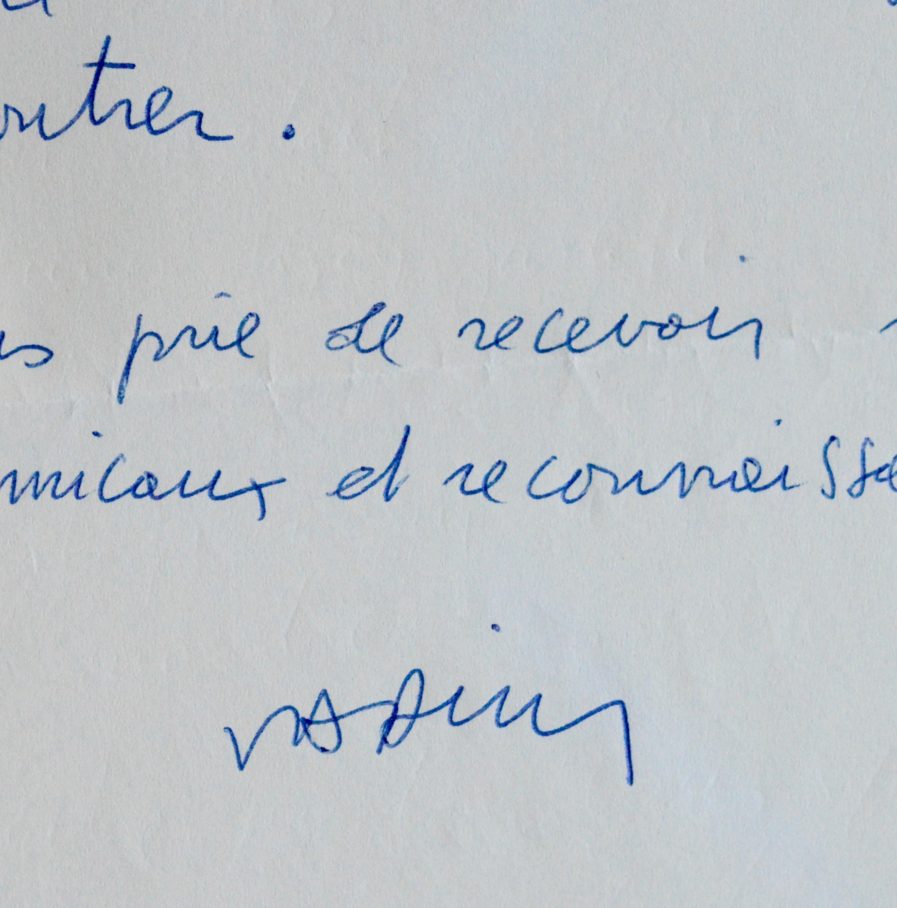 outrer.
us prie de recevoir
micaux et reconnaissa
VADIM